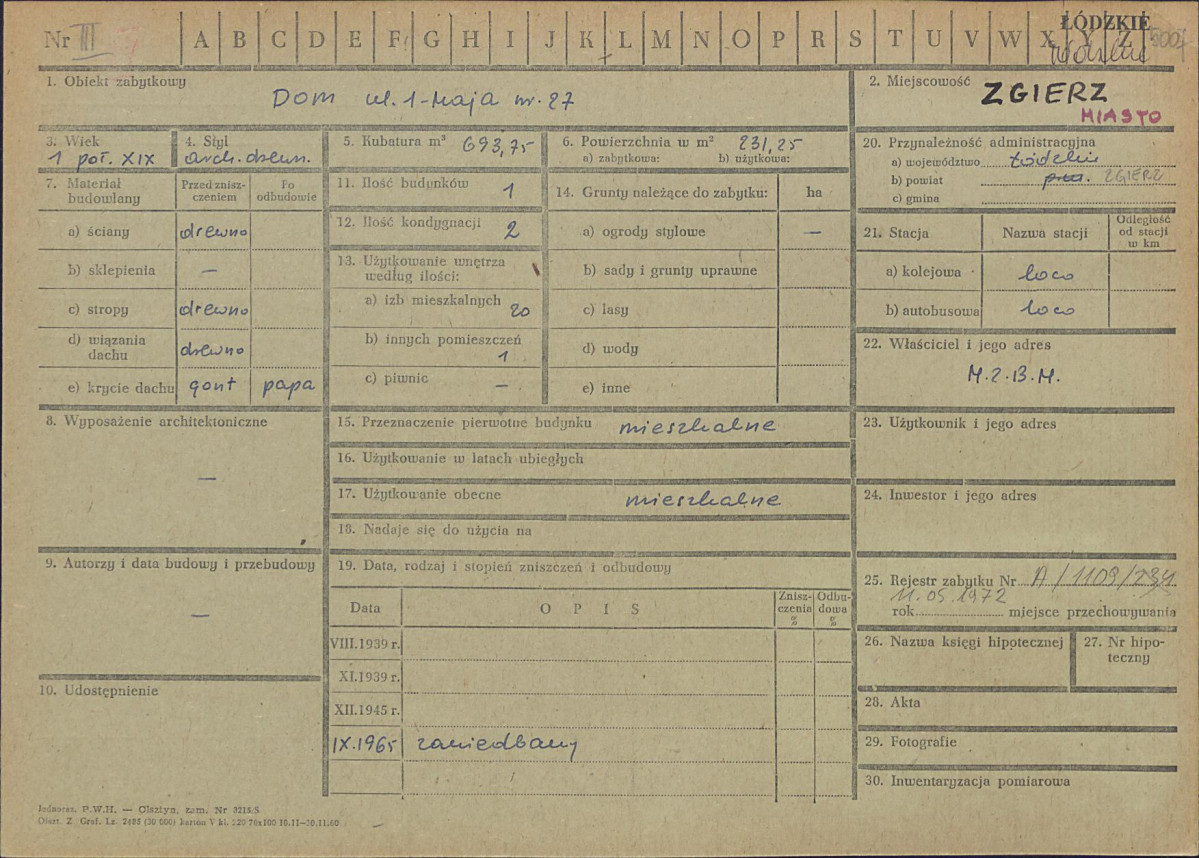 Nr III A B C D E F G H I J K L M N O P R S T U V W X Y Z
ŁÓDZKIE
5007
1. Obiekt zabytkowy
Dom ul. 1-Maja nr. 27
2. Miejscowość ZGIERZ
MIASTO
3. Wiek
1 poł. XIX
4. Styl
arch. drewn.
5. Kubatura m³ 693,75
6. Powierzchnia w m² 231,25
a) zabytkowa: b) użytkowa:
20. Przynależność administracyjna
a) województwo łódzkie
b) powiat ZGIERZ
c) gmina
7. Materiał budowlany
Przed znisz-
czeniem
Po
odbudowie
a) ściany drewno
b) sklepienia —
c) stropy drewno
d) wiązania
dachu drewno
e) krycie dachu gont papa
11. Ilość budynków 1
12. Ilość kondygnacji 2
13. Użytkowanie wnętrza
według ilości:
a) izb mieszkalnych
20
b) innych pomieszczeń
1
c) piwnic —
14. Grunty należące do zabytku: ha
a) ogrody stylowe —
b) sady i grunty uprawne
c) lasy
d) wody
e) inne
21. Stacja Nazwa stacji
Odległość
od stacji
w km
a) kolejowa loco
b) autobusowa loco
22. Właściciel i jego adres
M.Z.B.M.
8. Wyposażenie architektoniczne
—
15. Przeznaczenie pierwotne budynku mieszkalne
16. Użytkowanie w latach ubiegłych
17. Użytkowanie obecne mieszkalne
18. Nadaje się do użycia na
23. Użytkownik i jego adres
24. Inwestor i jego adres
9. Autorzy i data budowy i przebudowy
—
10. Udostępnienie
19. Data, rodzaj i stopień zniszczeń i odbudowy
Data OPIS
Znisz-
czenia
%
Odbu-
dowa
%
VIII.1939 r.
XI.1939 r.
XII.1945 r.
IX.1965 zaniedbany
25. Rejestr zabytku Nr A/1109/234
11.05.1972
rok miejsce przechowywania
26. Nazwa księgi hipotecznej
27. Nr hipo-
teczny
28. Akta
29. Fotografie
30. Inwentaryzacja pomiarowa
Jednoraz. P.W.H. — Olsztyn, zam. Nr 3215/S
Olszt. Z. Graf. Lz. 2488 (30 000) karton V kl.